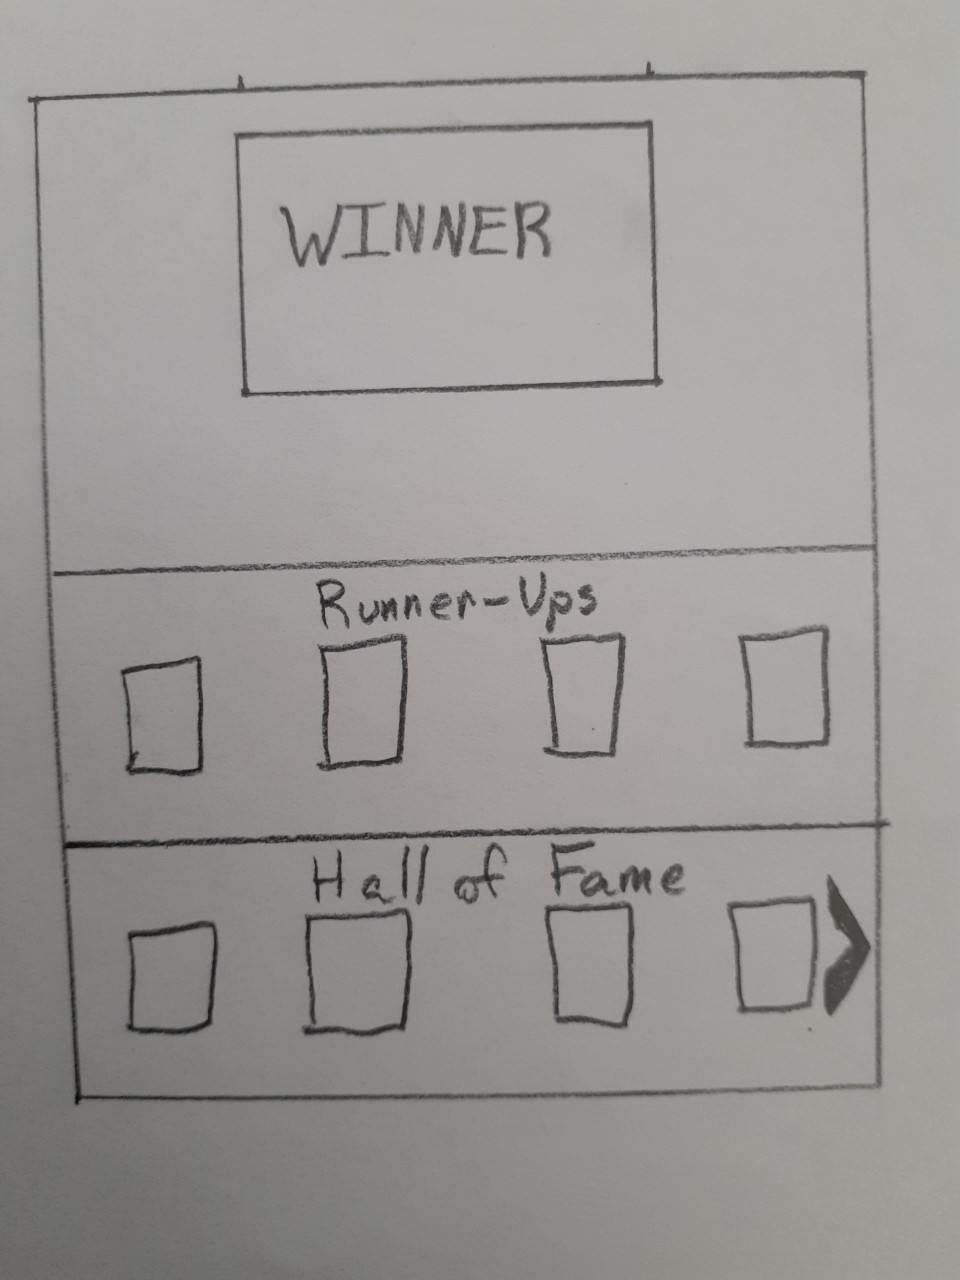 WINNER
Runner-Ups
Hall of Fame